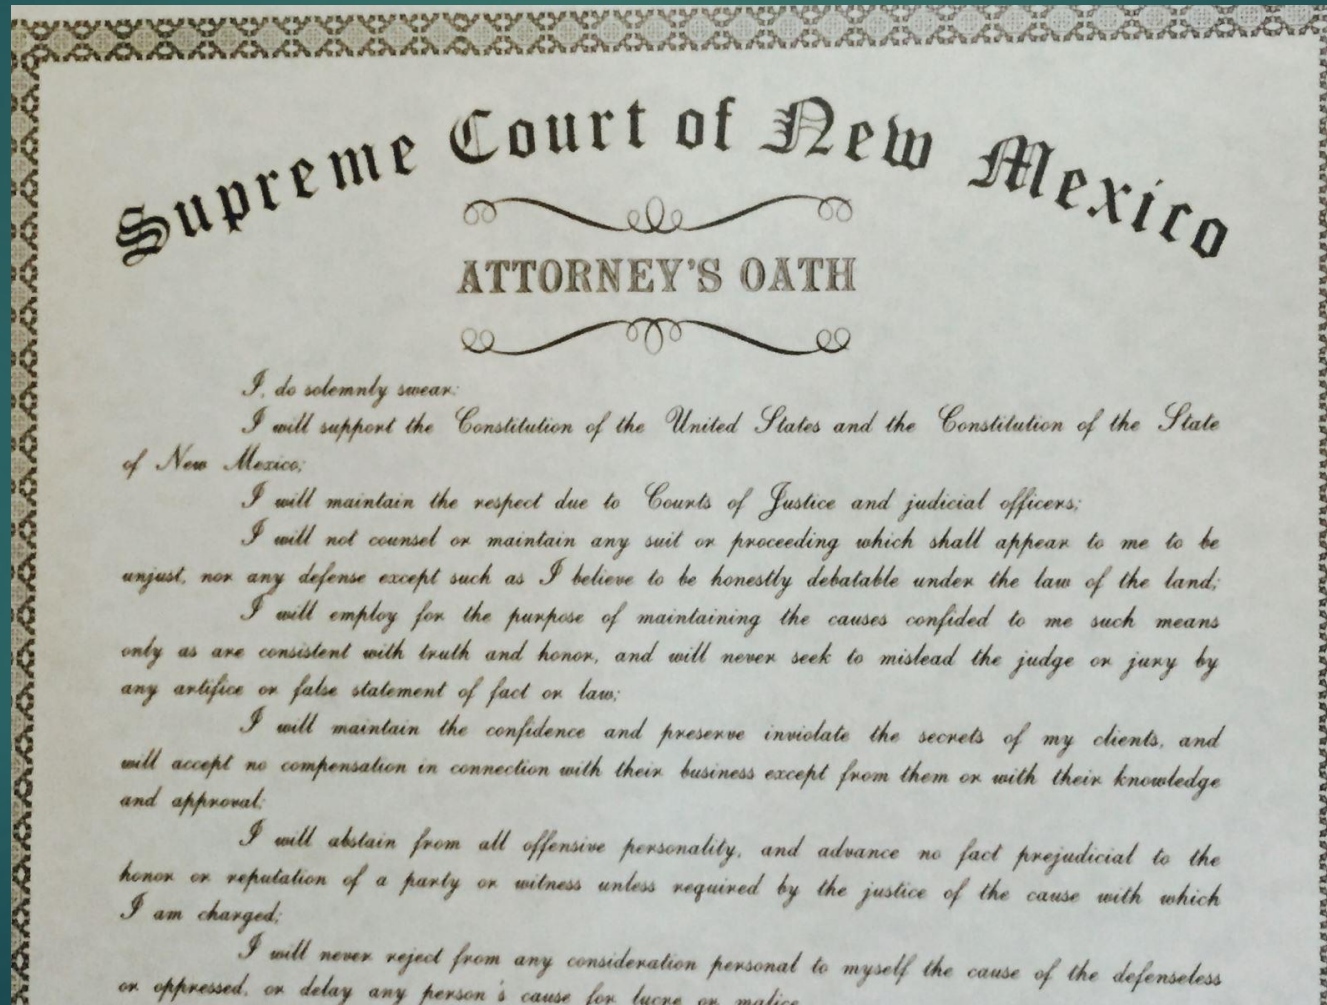 Supreme Court of New Mexico
ATTORNEY'S OATH
I, do solemnly swear:
I will support the Constitution of the United States and the Constitution of the State
of New Mexico;
I will maintain the respect due to Courts of Justice and judicial officers;
I will not counsel or maintain any suit or proceeding which shall appear to me to be
unjust, nor any defense except such as I believe to be honestly debatable under the law of the land;
I will employ for the purpose of maintaining the causes confided to me such means
only as are consistent with truth and honor, and will never seek to mislead the judge or jury by
any artifice or false statement of fact or law;
I will maintain the confidence and preserve inviolate the secrets of my clients, and
will accept no compensation in connection with their business except from them or with their knowledge
and approval;
I will abstain from all offensive personality, and advance no fact prejudicial to the
honor or reputation of a party or witness unless required by the justice of the cause with which
I am charged;
I will never reject from any consideration personal to myself the cause of the defenseless
or oppressed, or delay any person's cause for lucre or malice